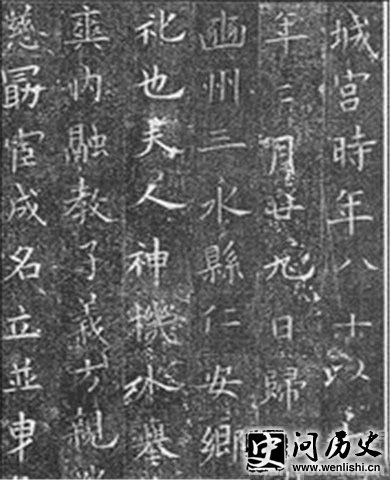 城宮時年八十以
年三月廿九日歸
豳州三水縣仁安鄉
礼也夫人神機外
爽内融教子義方親
慈勗宦成名立並車
史 问历史
www.wenlishi.cn